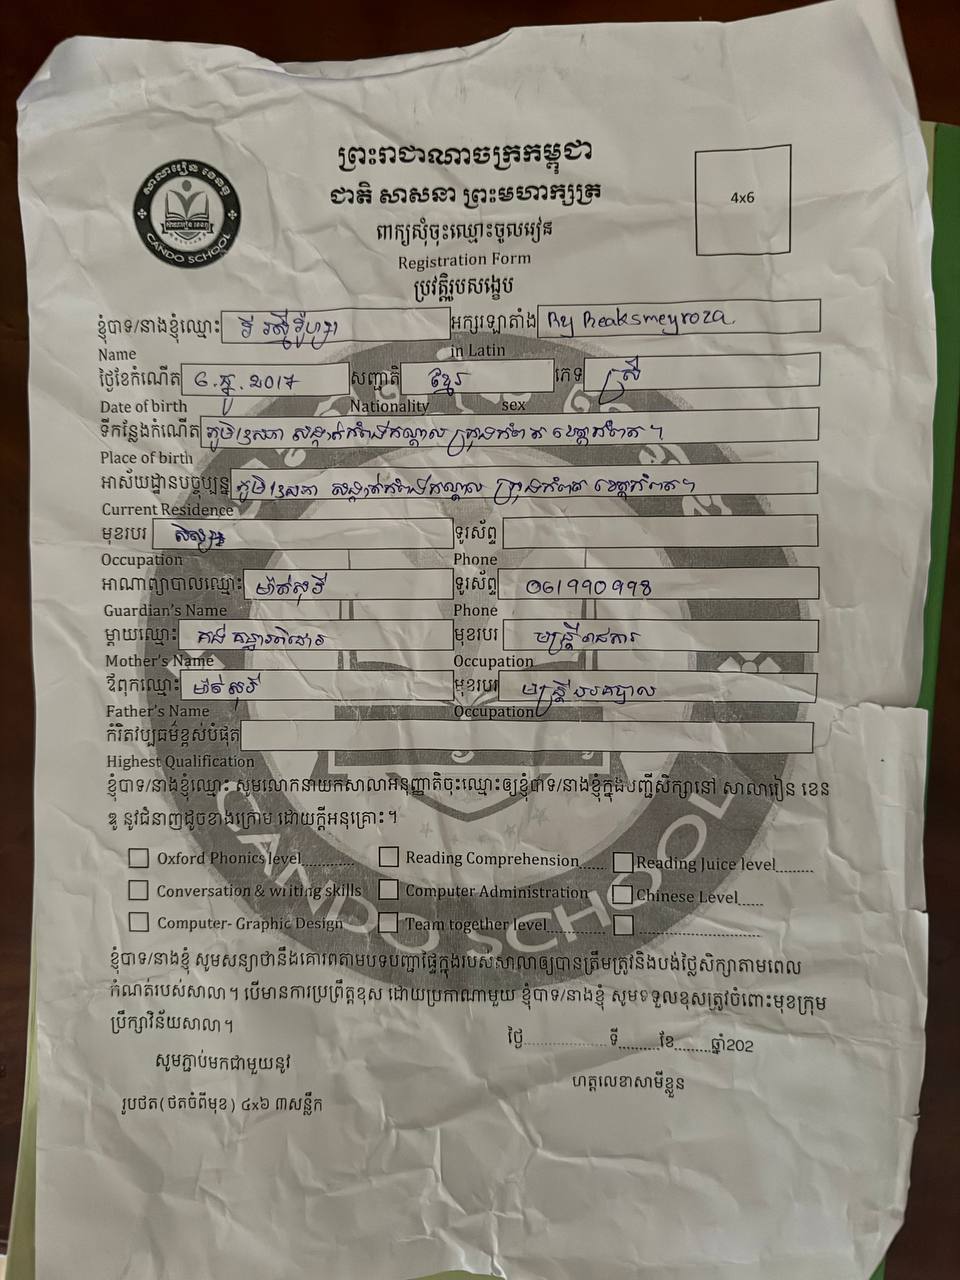 ព្រះរាជាណាចក្រកម្ពុជា
ជាតិ សាសនា ព្រះមហាក្សត្រ
ពាក្យសុំចុះឈ្មោះចូលរៀន
Registration Form
ប្រវត្តិរូបសង្ខេប
សាលារៀន ខេនឌូ
CANDO SCHOOL
4x6
ខ្ញុំបាទ/នាងខ្ញុំឈ្មោះ រី រស្មីរ៉ូហ្សា អក្សរឡាតាំង Ry Reaksmeyroza.
Name in Latin
ថ្ងៃខែកំណើត ៦.ធ្នូ.2017 សញ្ជាតិ ខ្មែរ ភេទ ស្រី
Date of birth Nationality sex
ទីកន្លែងកំណើត ភូមិ សង្កាត់កំពង់កណ្ដាល ក្រុងកំពត ខេត្តកំពត។
Place of birth
អាស័យដ្ឋានបច្ចុប្បន្ន ភូមិ សង្កាត់កំពង់កណ្ដាល ក្រុងកំពត ខេត្តកំពត។
Current Residence
មុខរបរ សិស្ស ទូរស័ព្ទ
Occupation Phone
អាណាព្យាបាលឈ្មោះ ម៉ាត់ស្មរី ទូរស័ព្ទ 061990998
Guardian's Name Phone
ម្ដាយឈ្មោះ មុខរបរ មន្ត្រីរាជការ
Mother's Name Occupation
ឪពុកឈ្មោះ ម៉ាត់ស្មរី មុខរបរ មន្ត្រីនគរបាល
Father's Name Occupation
កំរិតវប្បធម៌ខ្ពស់បំផុត
Highest Qualification
ខ្ញុំបាទ/នាងខ្ញុំឈ្មោះ សូមលោកនាយកសាលាអនុញ្ញាតិចុះឈ្មោះឲ្យខ្ញុំបាទ/នាងខ្ញុំក្នុងបញ្ជីសិក្សានៅ សាលារៀន ខេន
ឌូ នូវជំនាញដូចខាងក្រោម ដោយក្ដីអនុគ្រោះ។
Oxford Phonics level............ Reading Comprehension...... Reading Juice level.........
Conversation & writing skills Computer Administration Chinese Level......
Computer- Graphic Design Team together level..............
ខ្ញុំបាទ/នាងខ្ញុំ សូមសន្យាថានឹងគោរពតាមបទបញ្ជាផ្ទៃក្នុងរបស់សាលាឲ្យបានត្រឹមត្រូវនិងបង់ថ្លៃសិក្សាតាមពេល
កំណត់របស់សាលា។ បើមានការប្រព្រឹត្តខុស ដោយប្រកាណាមួយ ខ្ញុំបាទ/នាងខ្ញុំ សូមទទួលខុសត្រូវចំពោះមុខក្រុម
ប្រឹក្សាវិន័យសាលា។
ថ្ងៃ....................ទី.........ខែ........ឆ្នាំ202
សូមភ្ជាប់មកជាមួយនូវ
ហត្ថលេខាសាមីខ្លួន
រូបថត(ថតចំពីមុខ) ៤x៦ ៣សន្លឹក